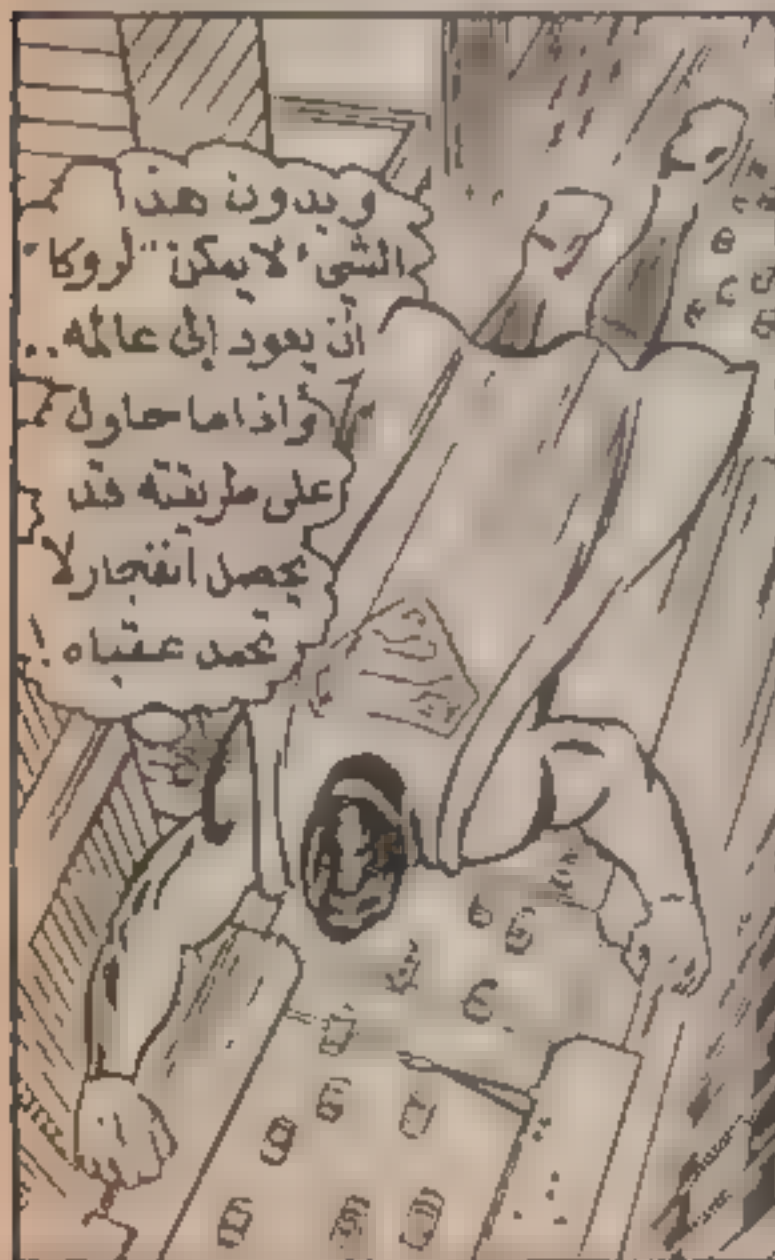 وبدون هذا
الشيء لا يمكن "لروكا"
أن يعود إلى عالمه..
وإذا ما حاول
على طريقته قد
يحصل انفجار لا
تحمد عقباه !